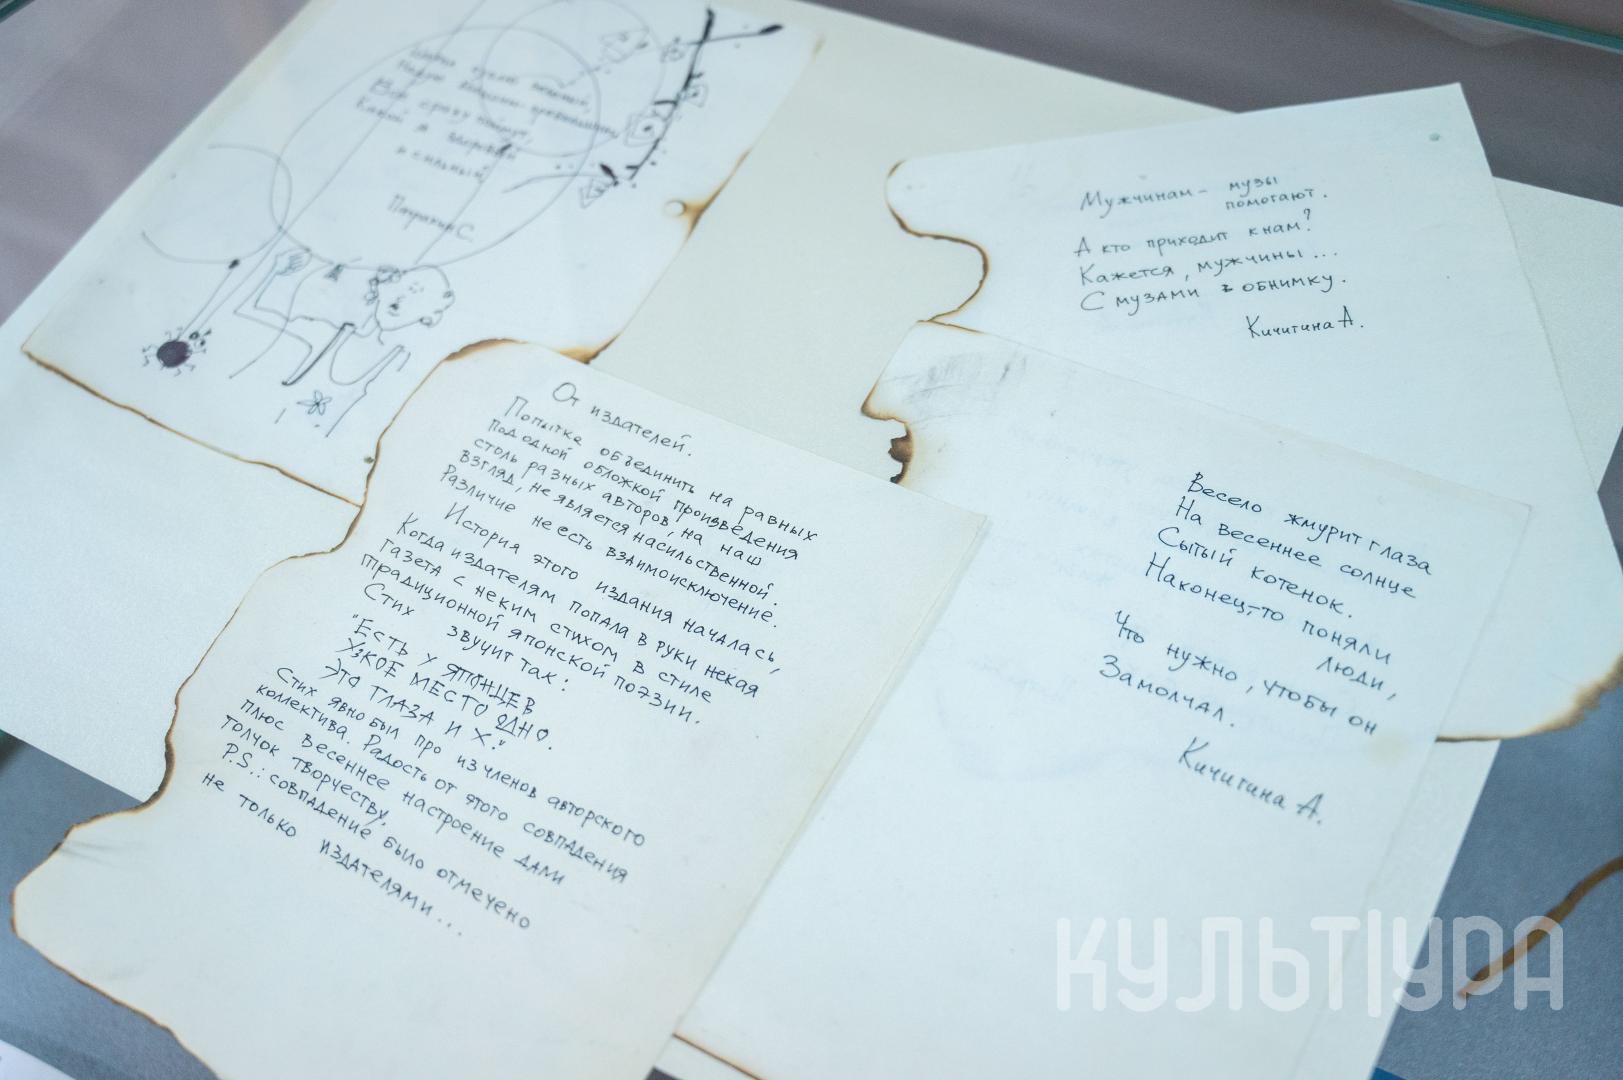 Вся сразу поймут,
Какой я здоровый
и сильный
С.
Мужчинам - музы
помогают.
А кто приходит к нам?
Кажется, мужчины...
С музами в обнимку.
Кичигина А.
От издателей.
Попытка объединить на равных
под одной обложкой произведения
столь разных авторов, на наш
взгляд, не является насильственной.
Различие не есть взаимоисключение.
История этого издания началась,
Когда издателям попала в руки некая
газета с неким стихом в стиле
традиционной японской поэзии.
Стих звучит так:
"Есть у японцев
Узкое место одно.
Это глаза и х."
Стих явно был про из членов авторского
коллектива. Радость от этого совпадения
плюс весеннее настроение дали
толчок творчеству.
P.S.: совпадение было отмечено
не только издателями...
Весело жмурит глаза
На весеннее солнце
Сытый котенок.
Наконец-то поняли
люди,
Что нужно, чтобы он
Замолчал.
Кичигина А.
КУЛЬТУРА